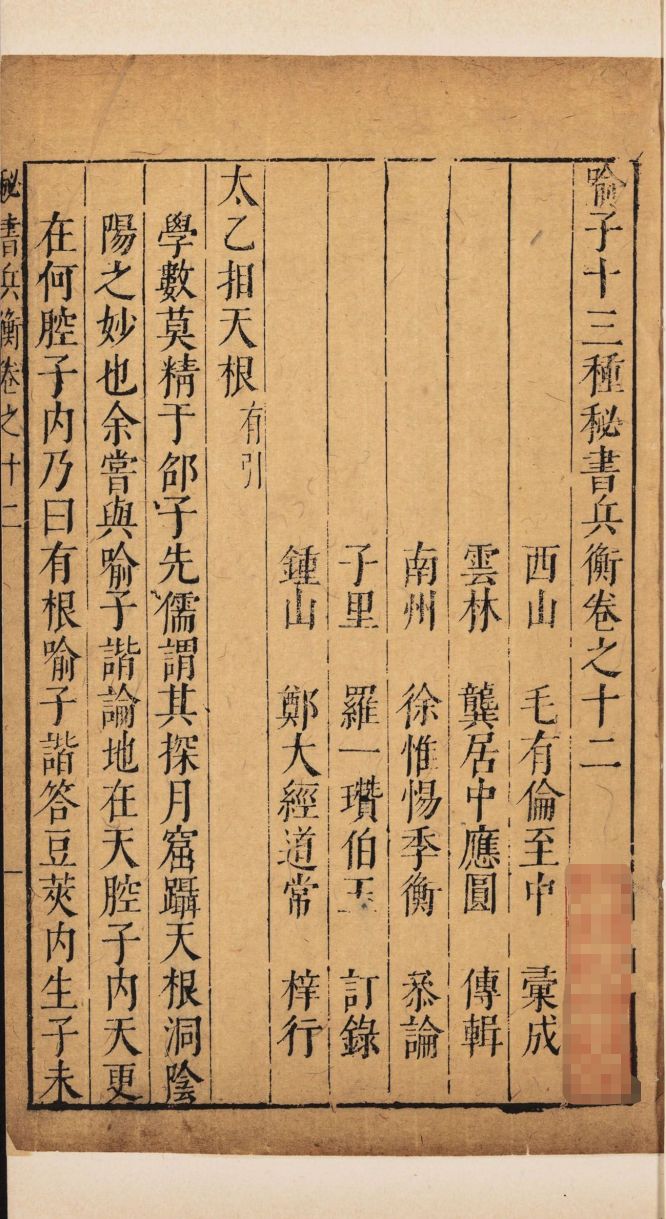 喻子十三種秘書兵衡卷之十二
西山 毛有倫至中 彙成
雲林 龔居中應圓 傳輯
南州 徐惟惕季衡 叅論
子里 羅一瓚伯玉 訂錄
鍾山 鄭大經道常 梓行
太乙抇天根有引
學數莫精于邵子先儒謂其探月窟躡天根洞陰
陽之妙也余嘗與喻子諧論地在天腔子內天更
在何腔子內乃曰有根喻子諧答豆莢內生子未
秘書兵衡卷之十二 一